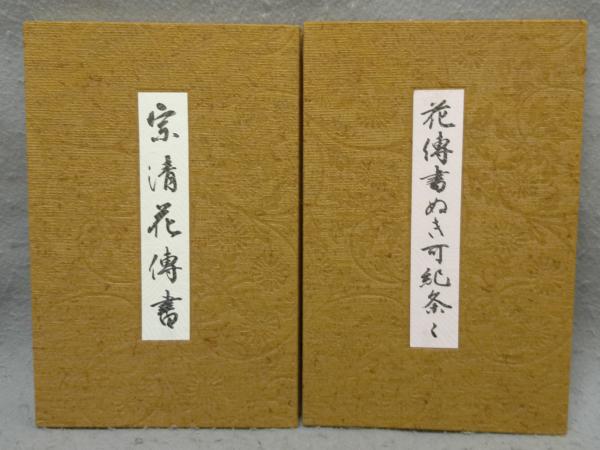 花傳書ぬき可紀条〻
宗清花傳書